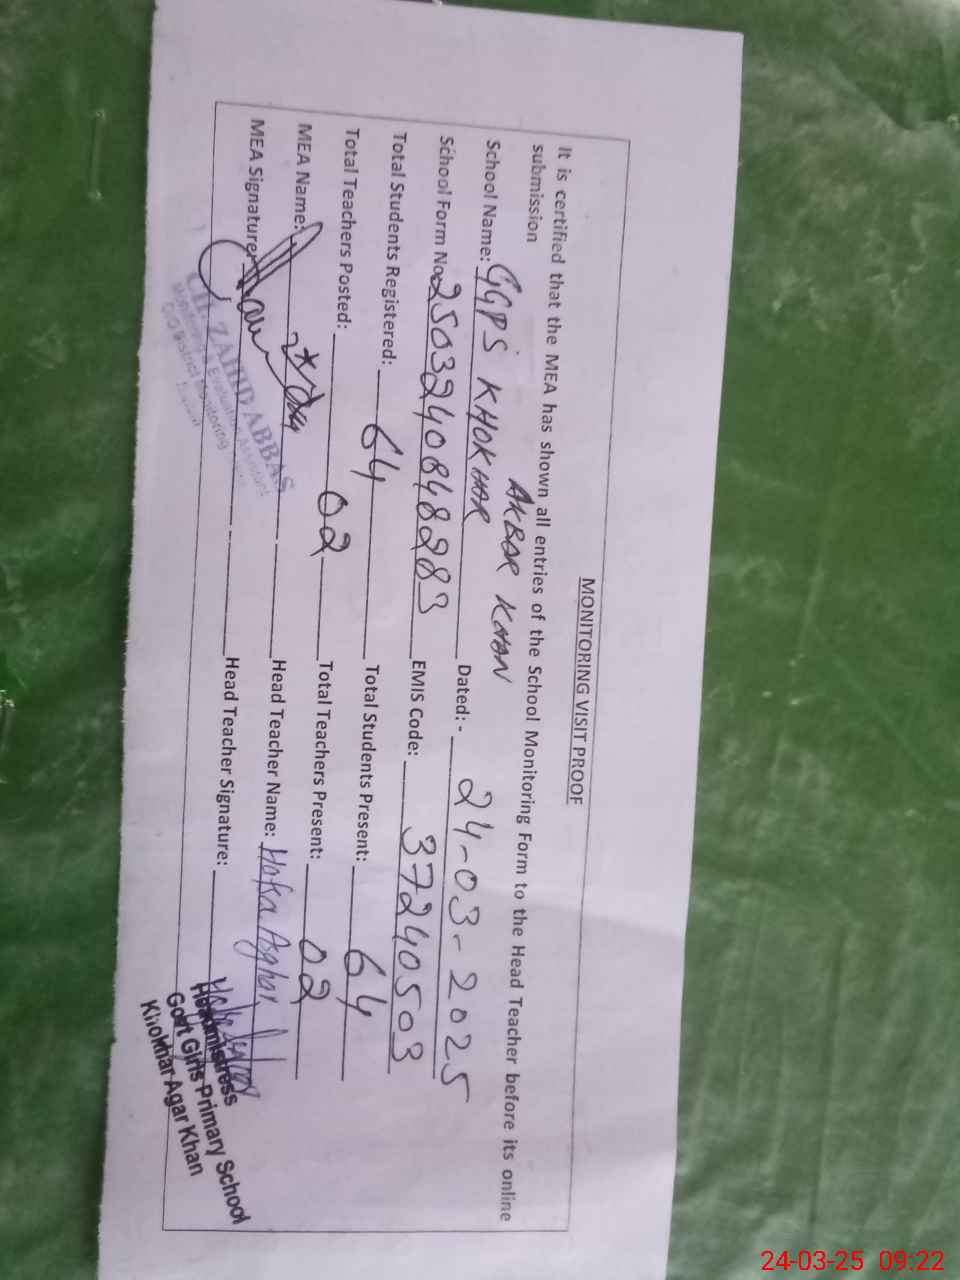 MONITORING VISIT PROOF
It is certified that the MEA has shown all entries of the School Monitoring Form to the Head Teacher before its online
submission
AKBAR KHAN
School Name: GGPS KHOKHAR Dated:- 24-03-2025
School Form No: 2503240848283 EMIS Code: 37240503
Total Students Registered: 64 Total Students Present: 64
Total Teachers Posted: 02 Total Teachers Present: 02
MEA Name: Head Teacher Name: Hafsa Asghar
MEA Signature: Head Teacher Signature:
CH. ZAHID ABBAS
Monitoring & Evaluation Assistant
O/O District Monitoring
Headmistress
Govt Girls Primary School
Khokhar Agar Khan
24-03-25 09:22